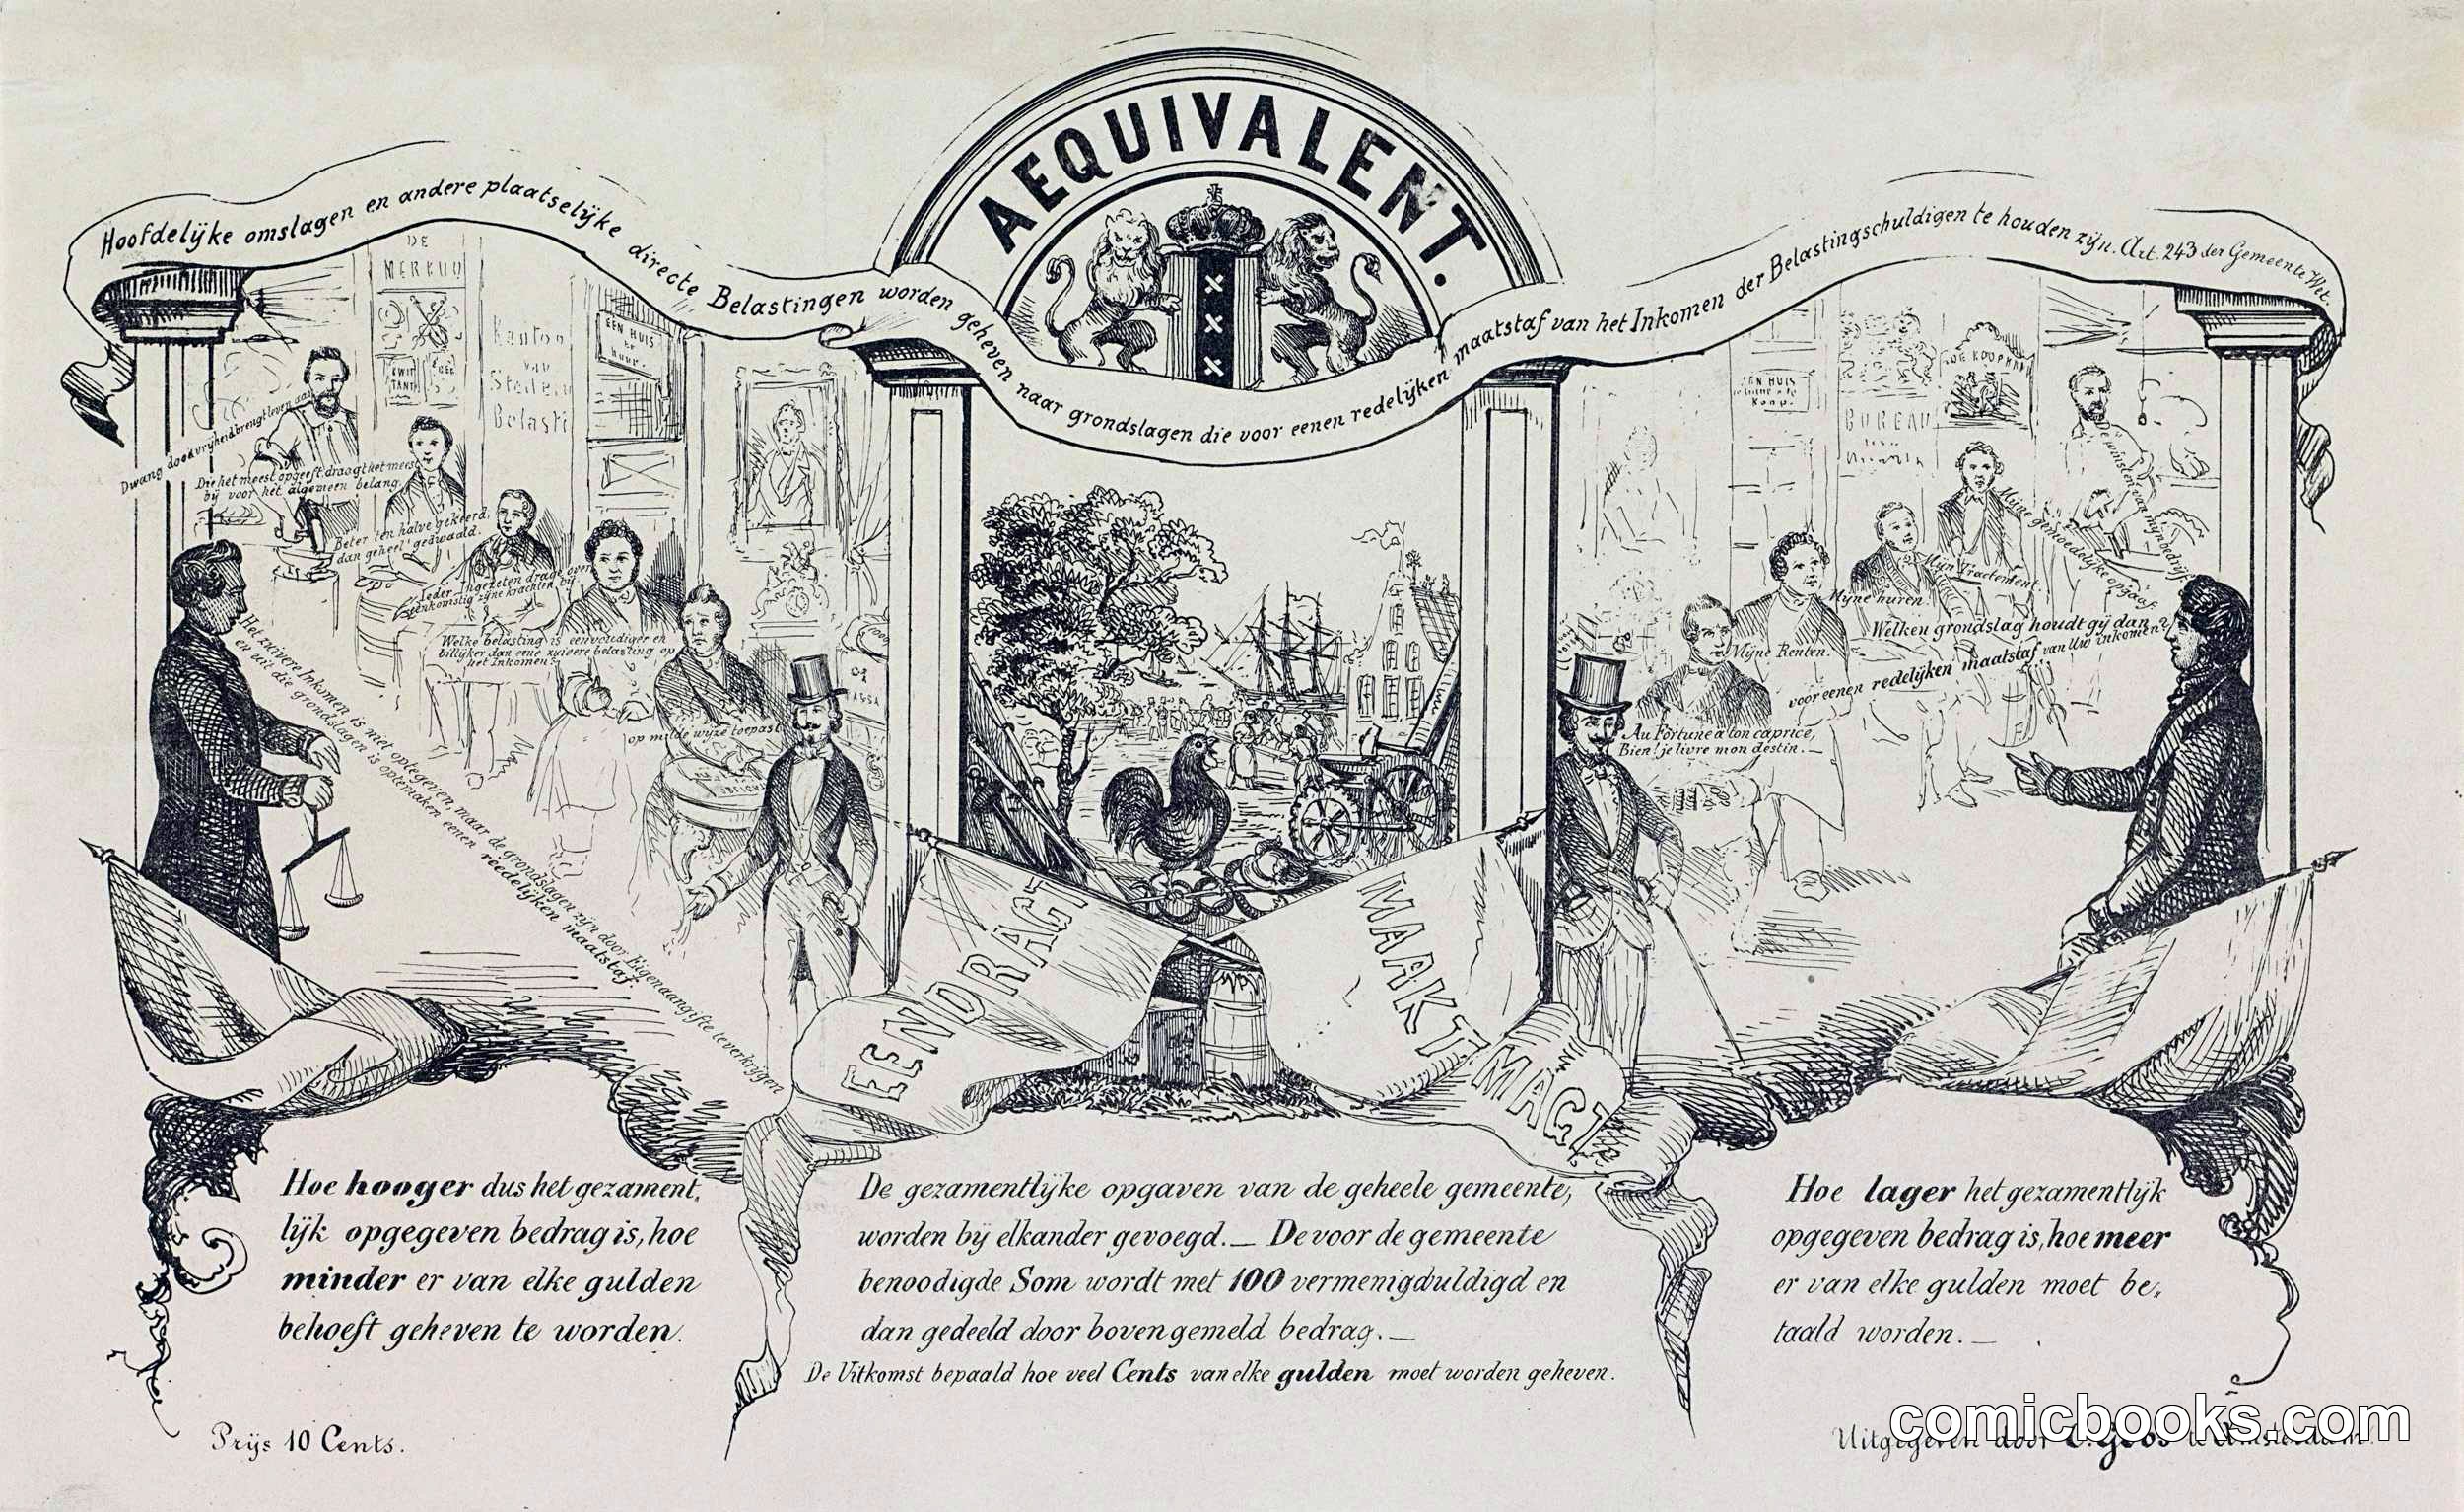 AEQUIVALENT.
Hoofdelijke omslagen en andere plaatselijke directe Belastingen worden geheven naar grondslagen die voor eenen redelijken maatstaf van het Inkomen der Belastingschuldigen te houden zijn. Art. 243 der Gemeente Wet.
DE
MERKUU
KWIT
TANTI
Kantoo
van
Steden
Belasti
EEN HUIS
te
huur.
Dwang doodt vrijheid brengt leven aan
Die het meest opgeeft draagt het meest
bij voor het algemeen belang.
Beter ten halve gekeerd,
dan geheel gedwaald.
Ieder Ingezeten drage over
eenkomstig zijne krachten bij
Welke belasting is eenvoudiger en
billijker dan eene zuivere belasting op
het Inkomen?
op milde wijze toepast
Het zuivere Inkomen is niet optegeven, maar de grondslagen zijn door Eigenaangifte te verkrijgen
en uit die grondslagen is optemaken eenen redelijken maatstaf.
ASSA
EEN HUIS
Koop.
BUREAU
DE KOOPH
De winsten van mijn bedrijf
Mijne gemoedelijke opgaaf
Mijn Tractement.
Mijne huren.
Mijne Renten.
Welken grondslag houdt gij dan
voor eenen redelijken maatstaf van Uw inkomen?
Au Fortune à ton caprice,
Bien! je livre mon destin.—
EENDRAGT
MAAKT MAGT
Hoe hooger dus het gezament,
lijk opgegeven bedrag is, hoe
minder er van elke gulden
behoeft geheven te worden.
De gezamentlijke opgaven van de geheele gemeente,
worden bij elkander gevoegd.— De voor de gemeente
benoodigde Som wordt met 100 vermenigvuldigd en
dan gedeeld door boven gemeld bedrag.—
De Uitkomst bepaald hoe veel Cents van elke gulden moet worden geheven.
Hoe lager het gezamentlijk
opgegeven bedrag is, hoe meer
er van elke gulden moet be,
taald worden.—
Prijs 10 Cents.
Uitgegeven door C. Goos te Amsterdam.
comicbooks.com